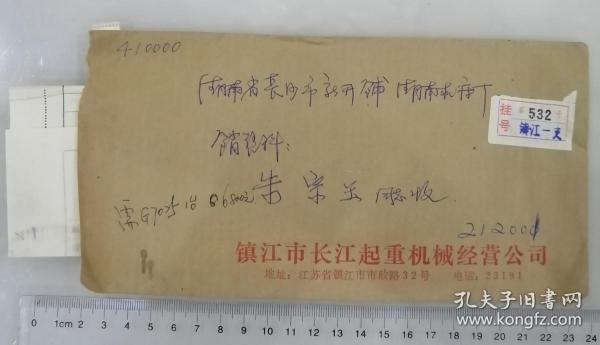 410000
湖南省长沙市新开铺湖南机床厂
挂号 532
镇江一支
销稳科:
朱宗玉 同志收
212001
镇江市长江起重机械经营公司
地址:江苏省镇江市市政路32号 电话:23191
孔夫子旧书网
www.kongfz.com
0 1cm 2 3 4 5 6 7 8 9 10 11 12 13 14 15 16 17 18 19 20 21 22 23 24